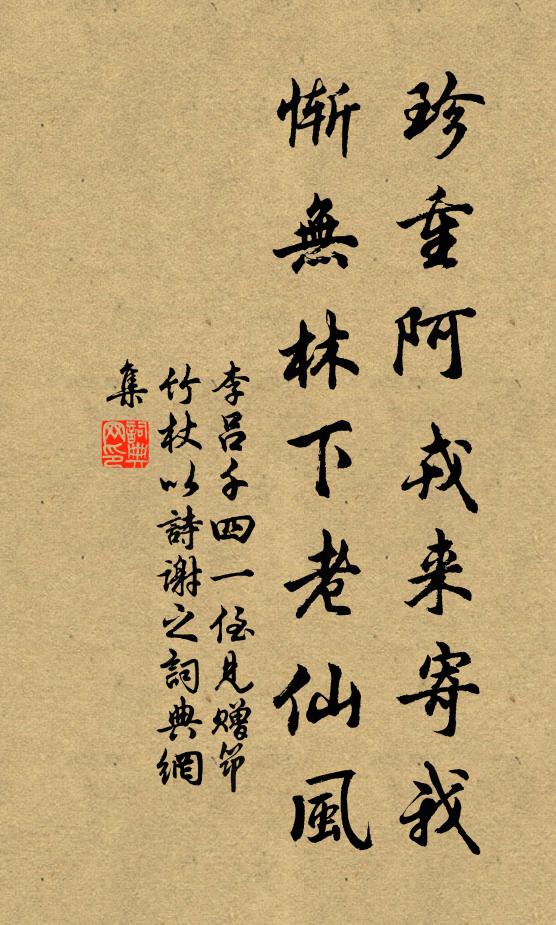 珍重阿戎来寄我
慚無林下老仙風
李吕千四一侄見贈節
竹杖以詩謝之詞典網
集
詞典網印